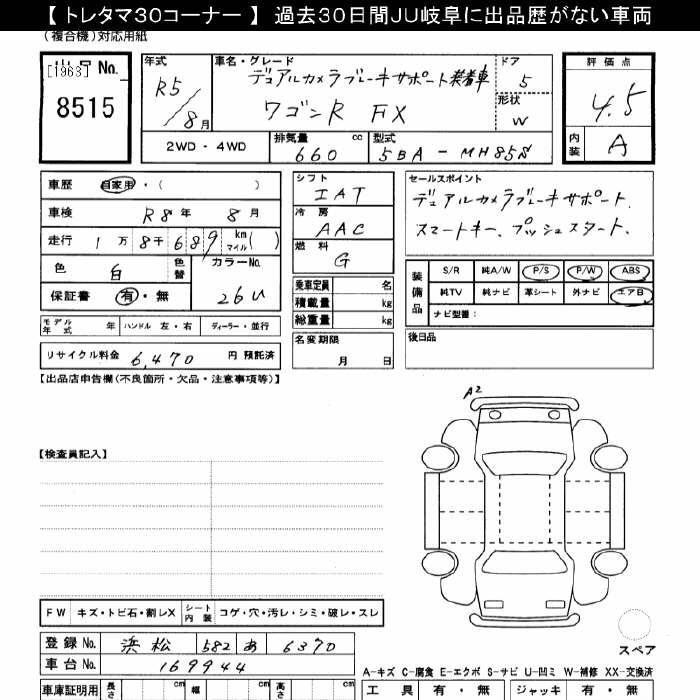 【 トレタマ30コーナー 】 過去30日間JU岐阜に出品歴がない車両
(複合機)対応用紙
[1963] No.
8515
年式 R5/8月
車名・グレード デュアルカメラブレーキサポート装着車
ワゴンR FX
ドア 5
形状 W
評価点 4.5
内装 A
2WD・4WD
排気量 660 cc
型式 5BA-MH85S
車歴 自家用・( )
車検 R8年 8月
走行 1万8千689 km マイル( )
色 白 色替 カラーNo. 26U
保証書 有・無
モデル年式 年 ハンドル 左・右 ディーラー・並行
リサイクル料金 6,470 円 預託済
シフト IAT
冷房 AAC
燃料 G
乗車定員 名
積載量 kg
総重量 kg
名変期限 月 日
セールスポイント
デュアルカメラブレーキサポート、
スマートキー、プッシュスタート、
装備品 S/R 純A/W P/S P/W ABS
純TV 純ナビ 革シート 外ナビ エアB
ナビ型番:
後日品
【出品店申告欄(不良箇所・欠品・注意事項等)】
A2
【検査員記入】
FW キズ・トビ石・割レX シート内装 コゲ・穴・汚レ・シミ・破レ・スレ
スペア
登録No. 浜松 582 あ 6370
車台No. 169944
A-キズ C-腐食 E-エクボ S-サビ U-凹ミ W-補修 XX-交換済
車庫証明用 長さ cm 幅 cm 高さ cm
工具 有・無 ジャッキ 有・無